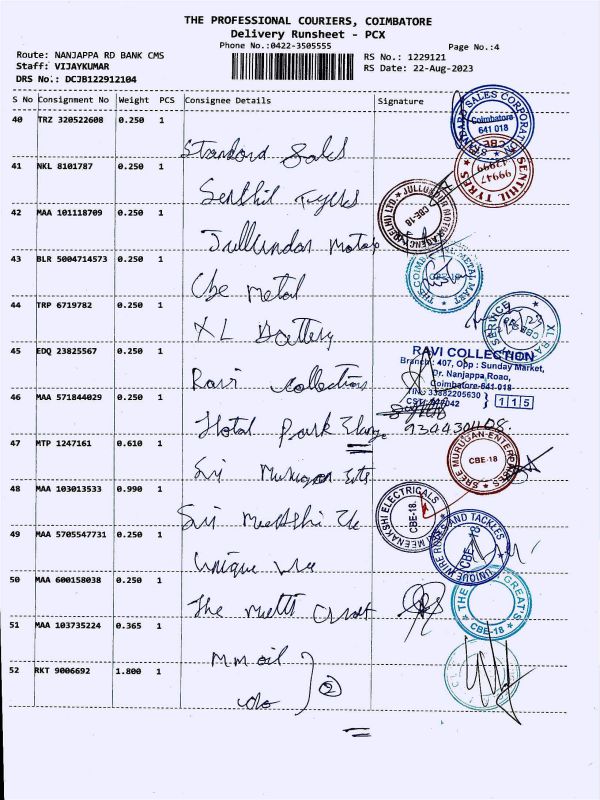 THE PROFESSIONAL COURIERS, COIMBATORE
Delivery Runsheet - PCX
Phone No.:0422-3505555
Page No.:4
Route: NANJAPPA RD BANK CMS
Staff: VIJAYKUMAR
DRS No.: DCJB122912104
RS No.: 1229121
RS Date: 22-Aug-2023
S No Consignment No Weight PCS Consignee Details Signature
40 TRZ 320522608 0.250 1
Standard Sales
STANDARD SALES CORPORATION Coimbatore 641 018
41 NKL 8101787 0.250 1
Senthil Tyres
SENTHIL TYRES CBE
42 MAA 101118709 0.250 1
Jullundar Motor
CBE-18
43 BLR 5004714573 0.250 1
Cbe metal
METAL MART
44 TRP 6719782 0.250 1
XL Battery
SERVICE
45 EDQ 23825567 0.250 1
Ravi Collections
RAVI COLLECTION
Branch: 407, Opp : Sunday Market,
Dr. Nanjappa Roao,
Coimbatore-641 018
TIN: 33882205630
115
46 MAA 571844029 0.250 1
Hotal Park
47 MTP 1247161 0.610 1
Sri Murugan
SREE MURUGAN ENTERPRISES CBE-18
48 MAA 103013533 0.990 1
Sri
MEENAKSHI ELECTRICALS CBE-18.
49 MAA 5705547731 0.250 1
Unique
UNIQUE WIRE ROPES AND TACKLES CBE-18
50 MAA 600158038 0.250 1
The
THE GREAT'S CBE-18
51 MAA 103735224 0.365 1
M.M oil
52 RKT 9006692 1.800 1
do
2